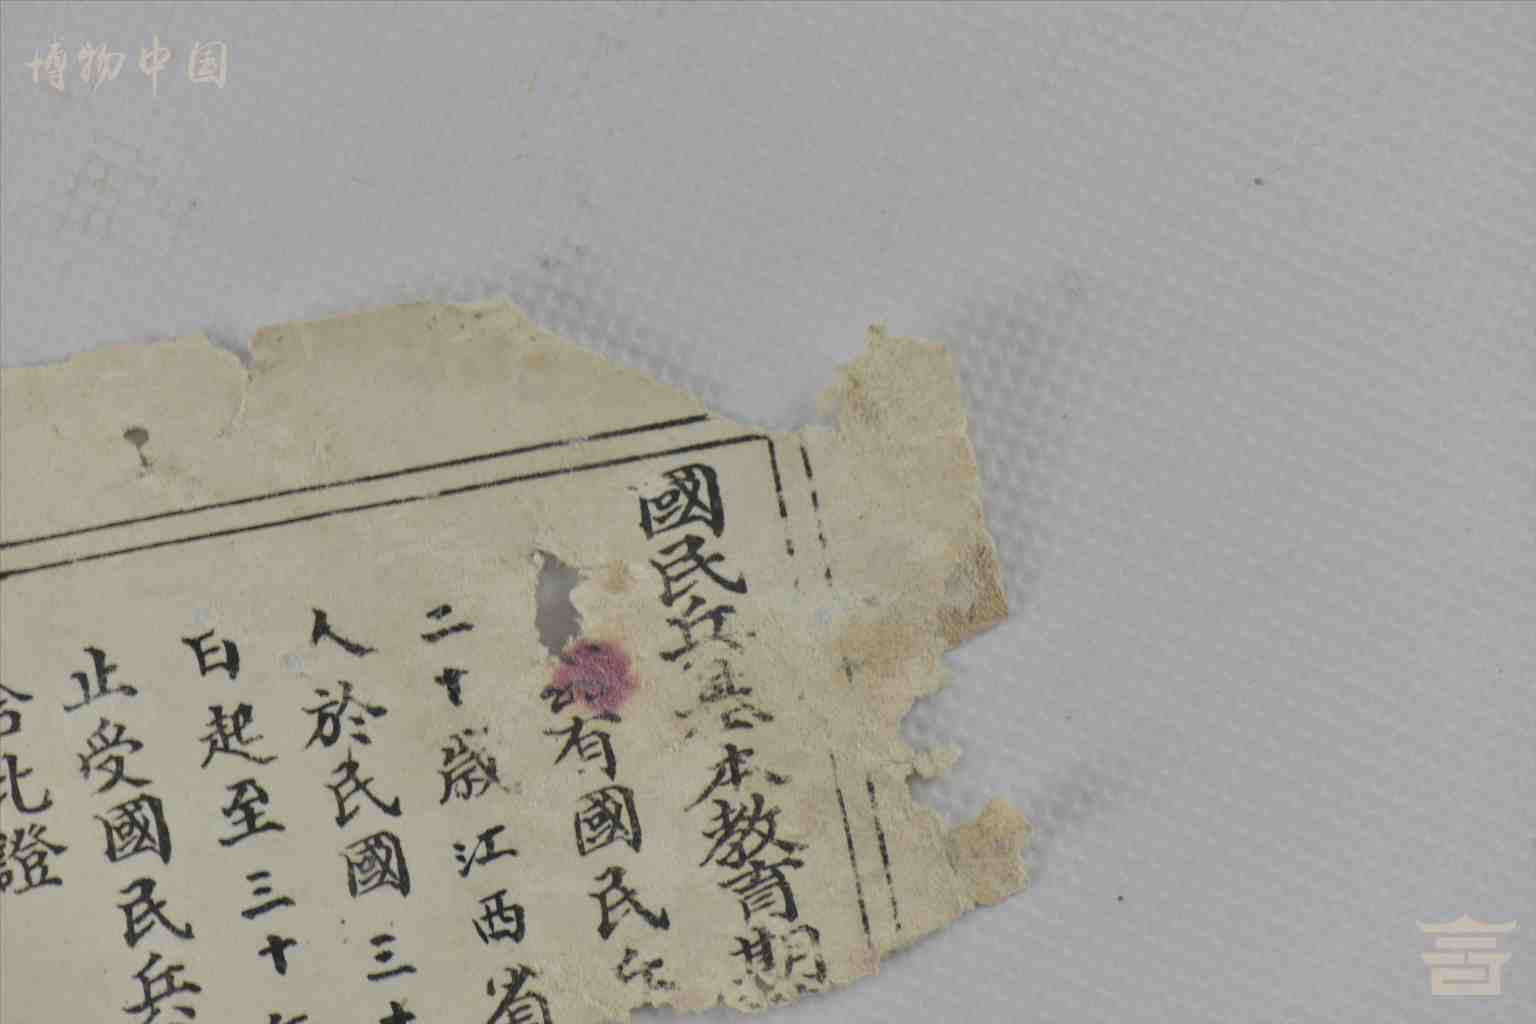 博物中国
國民兵基本教育期
有國民兵
二十歲江西省
人於民國三十
日起至三十年
止受國民兵
此證